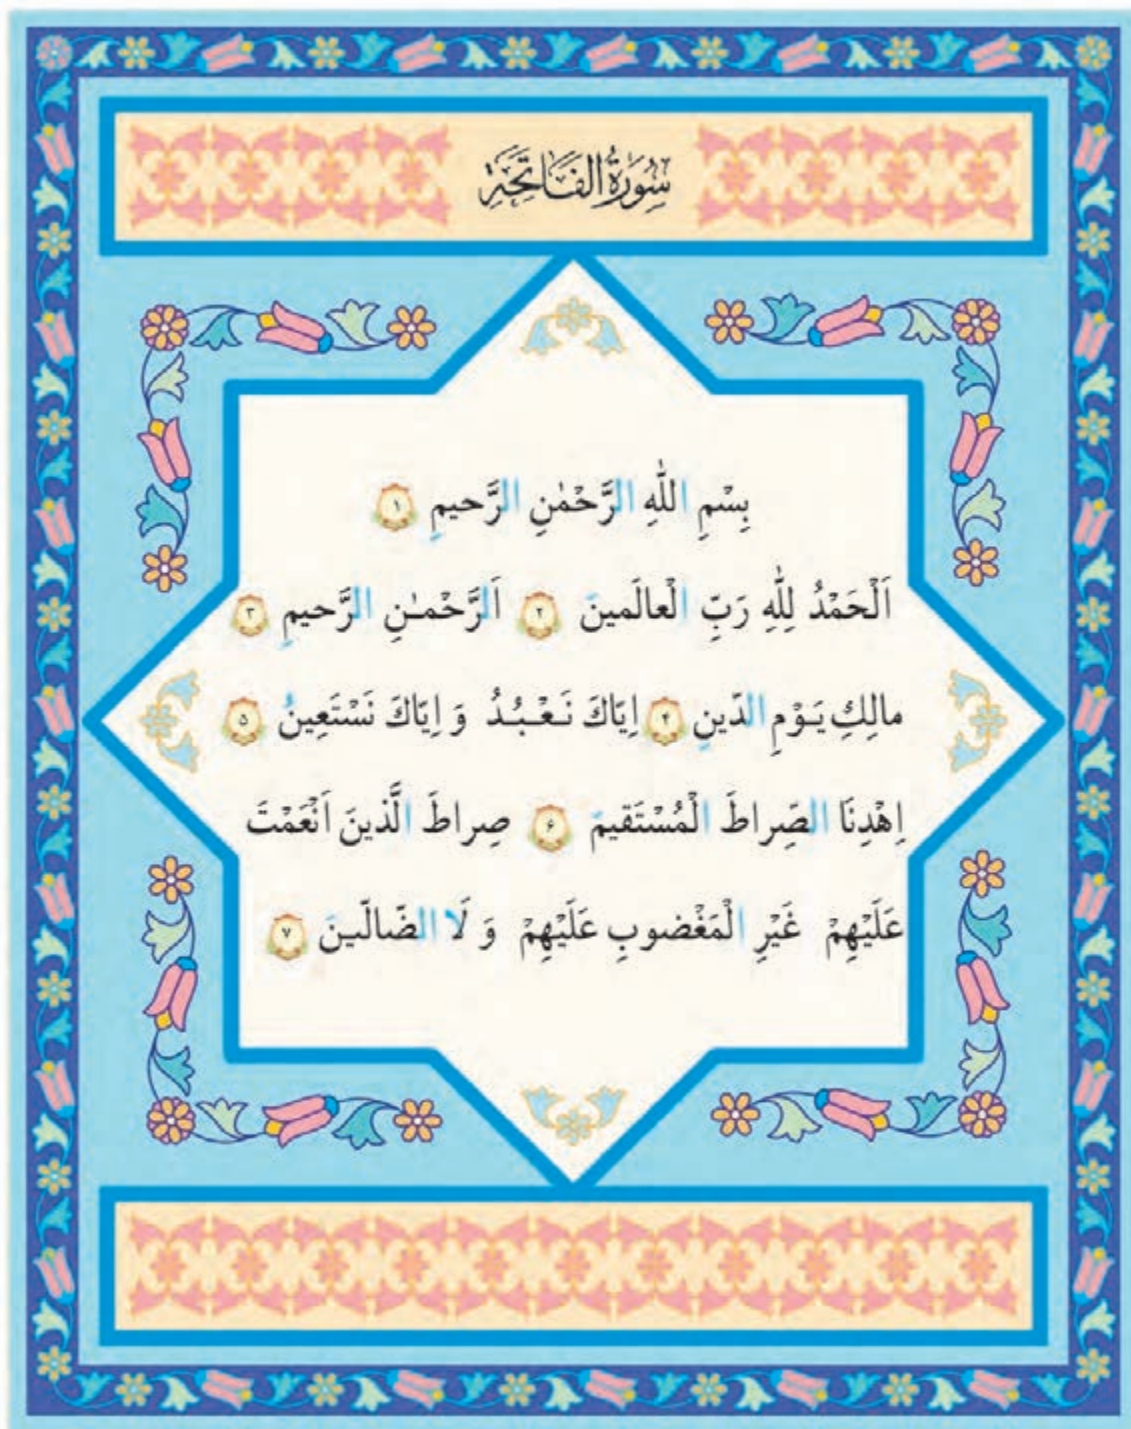 سُورَةُ الفَاتِحَةِ
بِسْمِ اللّٰهِ الرَّحْمٰنِ الرَّحیمِ ۱
اَلْحَمْدُ لِلّٰهِ رَبِّ الْعالَمینَ ۲ اَلرَّحْمـٰنِ الرَّحیمِ ۳
مالِكِ یَوْمِ الدّینِ ۴ اِیّاكَ نَعْبُدُ وَ اِیّاكَ نَسْتَعِینُ ۵
اِهْدِنَا الصِّراطَ الْمُسْتَقیمَ ۶ صِراطَ الَّذینَ اَنْعَمْتَ
عَلَیْهِمْ غَیْرِ الْمَغْضوبِ عَلَیْهِمْ وَ لَا الضّالّینَ ۷